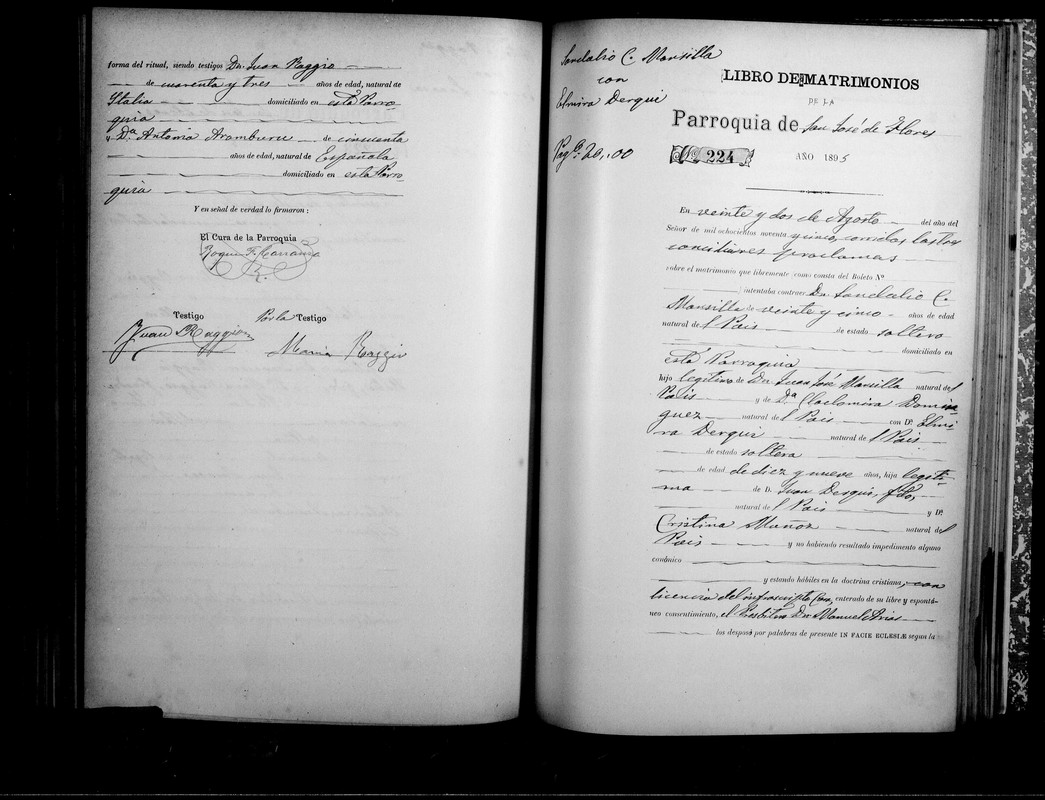 forma del ritual, siendo testigos Dn. Juan Raggio
de cuarenta y tres años de edad, natural de
Italia domiciliado en esta Parro-
quia
y Da. Antonia Aramburu de cincuenta
años de edad, natural de Española
domiciliado en esta Parro-
quia
Y en señal de verdad lo firmaron:
El Cura de la Parroquia
Roque F. Carranza
Testigo Por la Testigo
Juan Raggio
Maria Raggio
Sandalio C. Mansilla
con
Elmira Derqui
Pag. 20,,00
LIBRO DE MATRIMONIOS
DE LA
Parroquia de San José de Flores
224 AÑO 1895
En veinte y dos de Agosto del año del
Señor de mil ochocientos noventa y cinco, corridas las tres
conciliares proclamas
sobre el matrimonio que libremente como consta del Boleto Nº
intentaba contraer Dn. Sandalio C.
Mansilla de veinte y cinco años de edad
natural del Pais de estado soltero
domiciliado en
esta Parroquia
hijo legitimo de Dn. Juan José Mansilla natural del
Pais y de Da. Clodomira Domin
guez natural del Pais con Da. Elmi
ra Derqui natural del Pais
de estado soltera
de edad de diez y nueve años, hija legiti-
ma de D. Juan Derqui, fdo,
natural del Pais y Da.
Cristina Muñoz natural del
Pais y no habiendo resultado impedimento alguno
canónico
y estando hábiles en la doctrina cristiana, con
licencia del infrascripto Cura, enterado de su libre y espontá-
neo consentimiento, el Presbítero Dn. Manuel Arias
los desposó por palabras de presente IN FACIE ECLESIÆ segun la